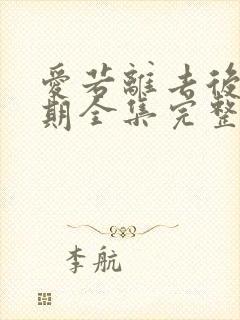 愛若離去後
期全集完整
李航